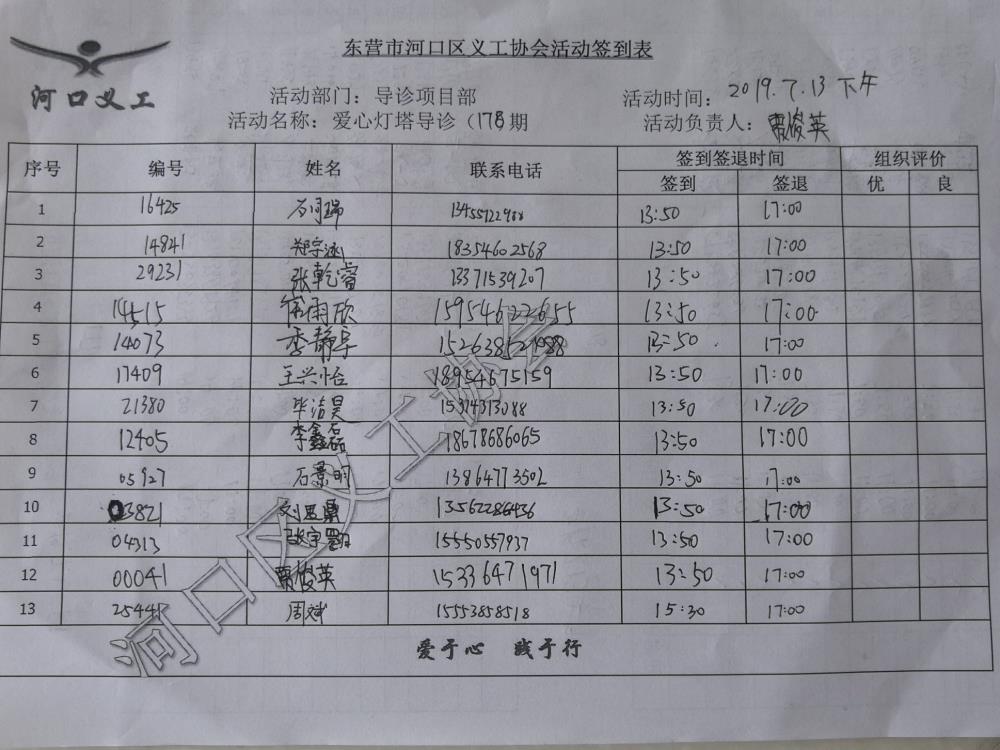 东营市河口区义工协会活动签到表
河口义工
活动部门：导诊项目部 活动时间：2019.7.13 下午
活动名称：爱心灯塔导诊（178）期 活动负责人：贾俊英
序号 编号 姓名 联系电话 签到签退时间 组织评价
签到 签退 优 良
1 16425 13:50 17:00
2 14841 18354602568 13:50 17:00
3 29231 张乾睿 13371539207 13:50 17:00
4 14515 13:50 17:00
5 14073 李静 13:50 17:00
6 17409 王兴怡 18954675159 13:50 17:00
7 21380 毕洁昊 15374313088 13:50 17:00
8 12405 李鑫磊 18678686065 13:50 17:00
9 05927 石景明 13864773502 13:50 17:00
10 03821 刘思鼎 13562286436 13:50 17:00
11 04313 张宇 15550557937 13:50 17:00
12 00041 贾俊英 15336471971 13:50 17:00
13 25441 周斌 15553858518 15:30 17:00
爱于心 践于行
河口区义工协会